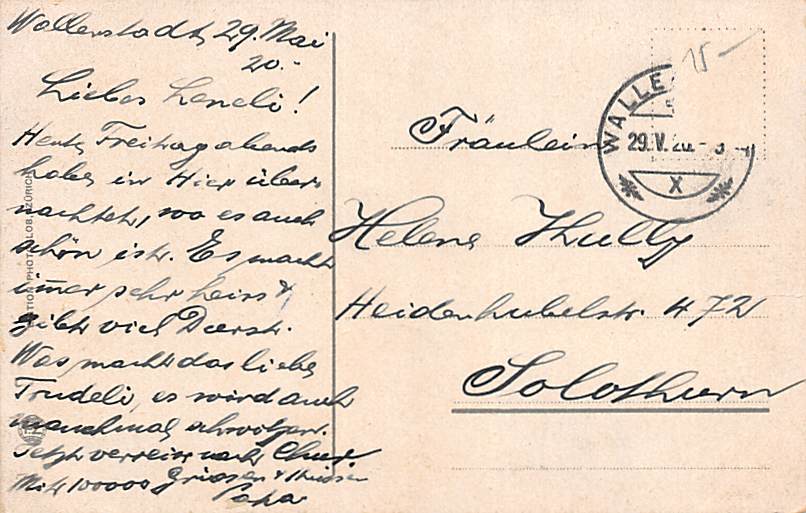 Wallenstadt, 29. Mai
20.-
Liebes Leneli!
Heute Freitag abends
habe ich Hier über-
nachtet, wo es auch
schön ist. Es macht
immer sehr heiss &
gibt viel Durst.
Was macht das liebe
Trudeli, es wird auch
manchmal schwitzen.
Jetzt verreise nach Chur
Mit 100000 Grüssen & Küssen
Papa
Fräulein
Helene
Heidenhubelstr. 472
Solothurn
WALLE
29.V.20.
X
PHOTOGLOB, ZÜRICH